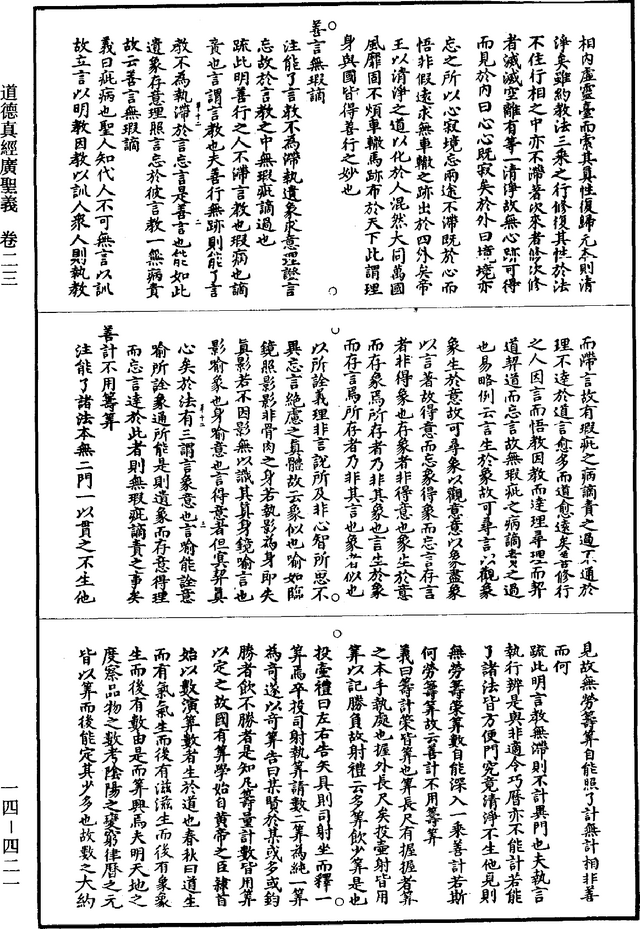 道德真經廣聖義　卷二三
一四—四二一
相內虛靈臺而索其真性復歸元本則清
淨矣雖約教法三乘之行修復其性於法
不住行相之中亦不滯著次來者修次修
者滅滅空離有等一清淨故無心跡可得
而見於內曰心心既寂矣於外曰境境亦
忘之所以心寂境忘兩途不滯既於心而
悟非假遠求無車轍之跡出於四外矣帝
王以清淨之道以化於人混然大同萬國
風靡固不煩車轍馬跡布於天下此謂理
身與國皆得善行之妙也
善言無瑕讁
注能了言教不為滯執遺象求意理證言
忘故於言教之中無瑕疵讁過也
疏此明善行之人不滯言教也瑕病也讁
責也言謂言教也夫善行無跡則能了言
教不為執滯於言忘言是善言也能如此
遺象存意理照言忘於彼言教一無病責
故云善言無瑕讁
義曰疵病也聖人知代人不可無言以訓
故立言以明教因教以訓人眾人則執教
而滯言故有瑕疵之病讁責之過不通於
理不達於道言愈多而道愈遠矣善修行
之人因言而悟教因教而達理尋理而契
道契道而忘言故無瑕疵之病讁責之過
也易略例云言生於象故可尋言以觀象
象生於意故可尋象以觀意意以象盡象
以言著故得意而忘象得象而忘言存言
者非得象也存象者非得意也象生於意
而存象焉所存者乃非其象也言生於象
而存言焉所存者乃非其言也象者似也
以所詮義理非言說所及非心智所思不
異忘言絕慮之真體故云象似也喻如臨
鏡照影影非骨肉之身若執影為身即失
真影若不因影無以識其真身鏡喻言也
影喻象也身喻意也言得意者但冥契真
心矣於法有三謂言象意也言喻能詮意
喻所詮象通所能是則遺象而存意得理
而忘言達於此者則無瑕疵讁責之事矣
善計不用籌筭
注能了諸法本無二門一以貫之不生他
見故無勞籌筭自能照了計無計相非善
而何
疏此明言教無滯則不計異門也夫執言
執行辨是與非適令巧曆亦不能計若能
了諸法皆方便門究竟清淨不生他見則
無勞籌策筭數自能深入一乘善計若斯
何勞籌筭故云善計不用籌筭
義曰籌計策皆筭也筭長尺有握握者筭
之本手執處也握外長尺矣投壺射皆用
筭以記勝負故射禮云多筭飲少筭是也
投壺禮曰左右告矢具則司射坐而釋一
筭焉卒投司射執筭請數二筭為純一筭
為奇遂以奇筭告曰某賢於某或多或鈞
勝者飲不勝者是知凡籌量計數皆用筭
以定之故國有筭學始自黃帝之臣隸首
始以數演筭數者生於道也春秋曰道生
而有氣氣生而後有滋滋生而後有象象
生而後有數由是而筭興焉夫明天地之
度察品物之數考陰陽之變窮律曆之元
皆以筭而後能定其少多也故數之大約